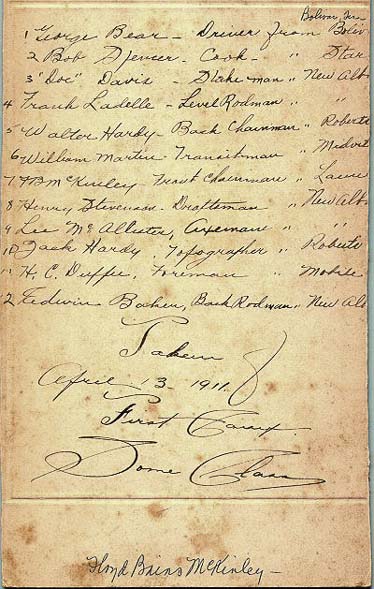 Bolivar, Ten
1 George Bear - Driver from Boliv
2 Bob Spencer - Cook - " Star
3 "Doc" Davis - Stake man " New Alb
4 Frank Ladelle - Level Rodman " "
5 Walter Hardy - Back Chainman " Roberts
6 William Martin Transitman " Midvi
7 FB McKinley - Front Chainman " Laure
8 Henry Stevenson - Draftsman " New Alb
9 Lee McAllister, Axeman " "
10 Jack Hardy, Topographer " Roberts
11 H. C. Duffie, Foreman " Mobile
12 Edwin Baker, Back Rodman " New Alb
Taken
April 13 - 1911.
First Camp.
Some Class
Floyd Bains McKinley -